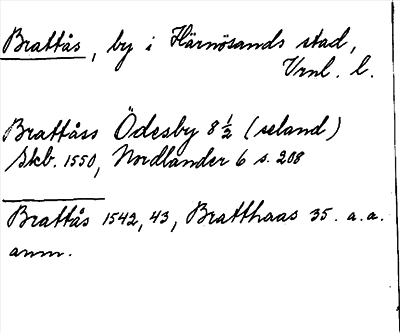 Brattås, by i Härnösands stad,
Vrnl. l.
Brattåss Ödesby 8 ½ (seland)
Skb. 1550, Nordlander 6 s. 208
Brattås 1542, 43, Bratthaas 35. a.a.
anm.